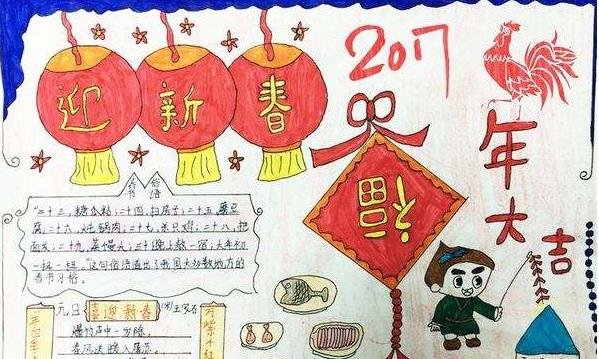 迎新春
2017
年大吉
福
春节
俗语
"二十三，糖瓜粘；二十四，扫房子；二十五，磨豆
腐；二十六，炖锅肉；二十七，杀只鸡；二十八，把
面发；二十九，蒸馒头；三十晚上熬一宿；大年初
一扭一扭。"这句俗语道出了我国大多数地方的
春节习俗。
元日
喜迎新春
爆竹声中一岁除，
春风送暖入屠苏。
万紫千红